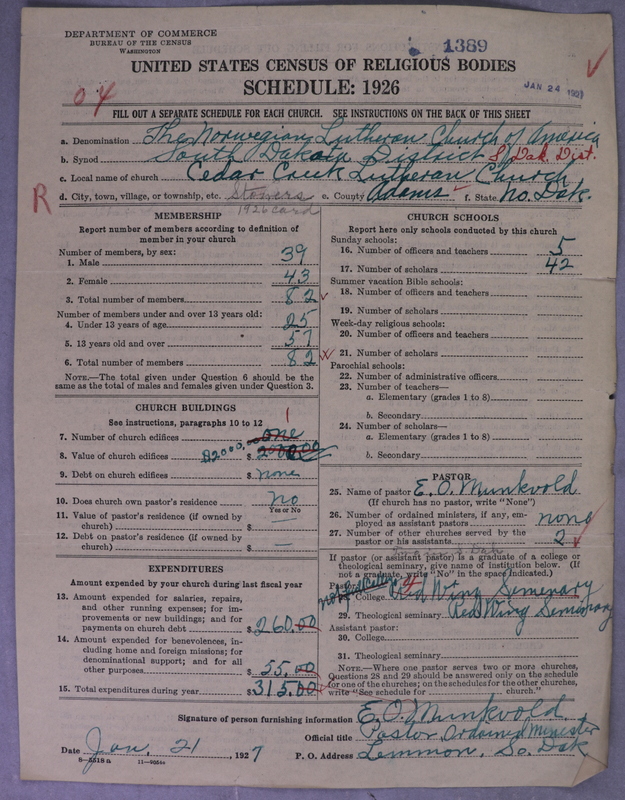 DEPARTMENT OF COMMERCE
BUREAU OF THE CENSUS
WASHINGTON
1389
UNITED STATES CENSUS OF RELIGIOUS BODIES
SCHEDULE: 1926
JAN 24 192
04
FILL OUT A SEPARATE SCHEDULE FOR EACH CHURCH. SEE INSTRUCTIONS ON THE BACK OF THIS SHEET
a. Denomination The Norwegian Lutheran Church of America
b. Synod South Dakota District S. Dak. Dist.
c. Local name of church Cedar Creek Lutheran Church
R
d. City, town, village, or township, etc. Stowers e. County Adams f. State No. Dak.
1926 card
MEMBERSHIP
Report number of members according to definition of
member in your church
Number of members, by sex:
1. Male 39
2. Female 43
3. Total number of members 82
Number of members under and over 13 years old:
4. Under 13 years of age 25
5. 13 years old and over 57
6. Total number of members 82
NOTE.—The total given under Question 6 should be the
same as the total of males and females given under Question 3.
CHURCH BUILDINGS
See instructions, paragraphs 10 to 12
1
7. Number of church edifices one
8. Value of church edifices $2000.00 $ 2000.00
9. Debt on church edifices $ none
10. Does church own pastor's residence no
Yes or No
11. Value of pastor's residence (if owned by
church) $ —
12. Debt on pastor's residence (if owned by
church) $ —
EXPENDITURES
Amount expended by your church during last fiscal year
13. Amount expended for salaries, repairs,
and other running expenses; for im-
provements or new buildings; and for
payments on church debt $ 260.00
14. Amount expended for benevolences, in-
cluding home and foreign missions; for
denominational support; and for all
other purposes $ 55.00
15. Total expenditures during year $ 315.00
CHURCH SCHOOLS
Report here only schools conducted by this church
Sunday schools:
16. Number of officers and teachers 5
17. Number of scholars 42
Summer vacation Bible schools:
18. Number of officers and teachers
19. Number of scholars
Week-day religious schools:
20. Number of officers and teachers
21. Number of scholars
Parochial schools:
22. Number of administrative officers
23. Number of teachers—
a. Elementary (grades 1 to 8)
b. Secondary
24. Number of scholars—
a. Elementary (grades 1 to 8)
b. Secondary
PASTOR
25. Name of pastor E. O. Munkvold
(If church has no pastor, write "None")
26. Number of ordained ministers, if any, em-
ployed as assistant pastors none
27. Number of other churches served by the
pastor or his assistants 2
If pastor (or assistant pastor) is a graduate of a college or
theological seminary, give name of institution below. (If
not a graduate, write "No" in the space indicated.)
28. College Red Wing Semenary
29. Theological seminary Red Wing Seminary
Assistant pastor:
30. College
31. Theological seminary
NOTE.—Where one pastor serves two or more churches,
Questions 28 and 29 should be answered only on the schedule
for one of the churches; on the schedules for the other churches,
write "See schedule for church."
Signature of person furnishing information E. O. Munkvold
Official title Pastor, Ordained Minister
Date Jan, 21, 1927 P. O. Address Lemmon, So. Dak
8—5518 a